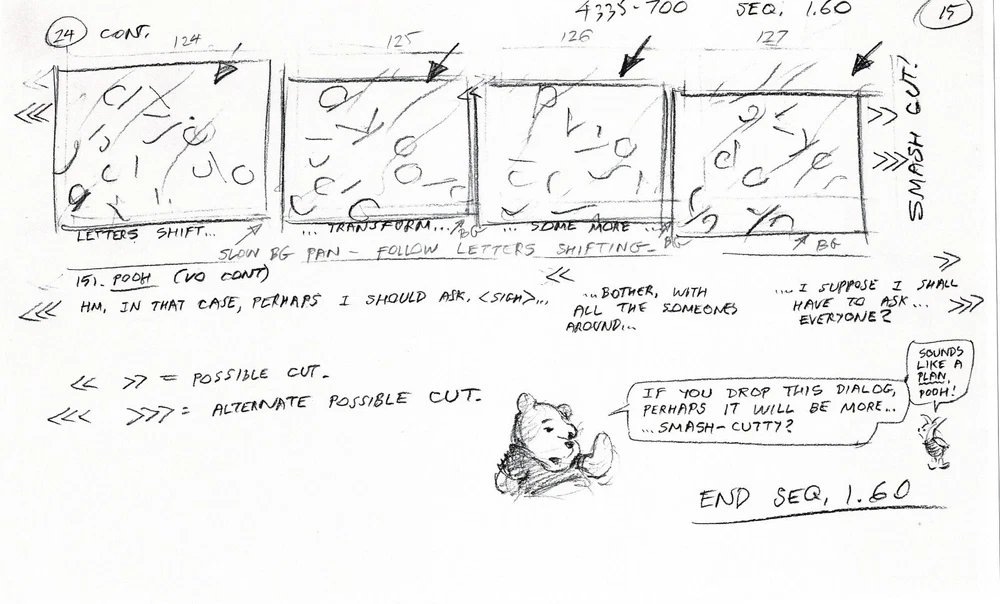 4335-700 SEQ. 1.60 15
24 CONT.
124 125 126 127
SMASH CUT!
LETTERS SHIFT... ... TRANSFORM... ... SOME MORE ...
BG BG BG
SLOW BG PAN - FOLLOW LETTERS SHIFTING-
151. POOH (VO CONT)
HM, IN THAT CASE, PERHAPS I SHOULD ASK. <SIGH>...
...BOTHER, WITH
ALL THE SOMEONES
AROUND...
... I SUPPOSE I SHALL
HAVE TO ASK...
EVERYONE?
<< >> = POSSIBLE CUT.
<<< >>> = ALTERNATE POSSIBLE CUT.
IF YOU DROP THIS DIALOG,
PERHAPS IT WILL BE MORE...
...SMASH-CUTTY?
SOUNDS
LIKE A
PLAN,
POOH!
END SEQ. 1.60